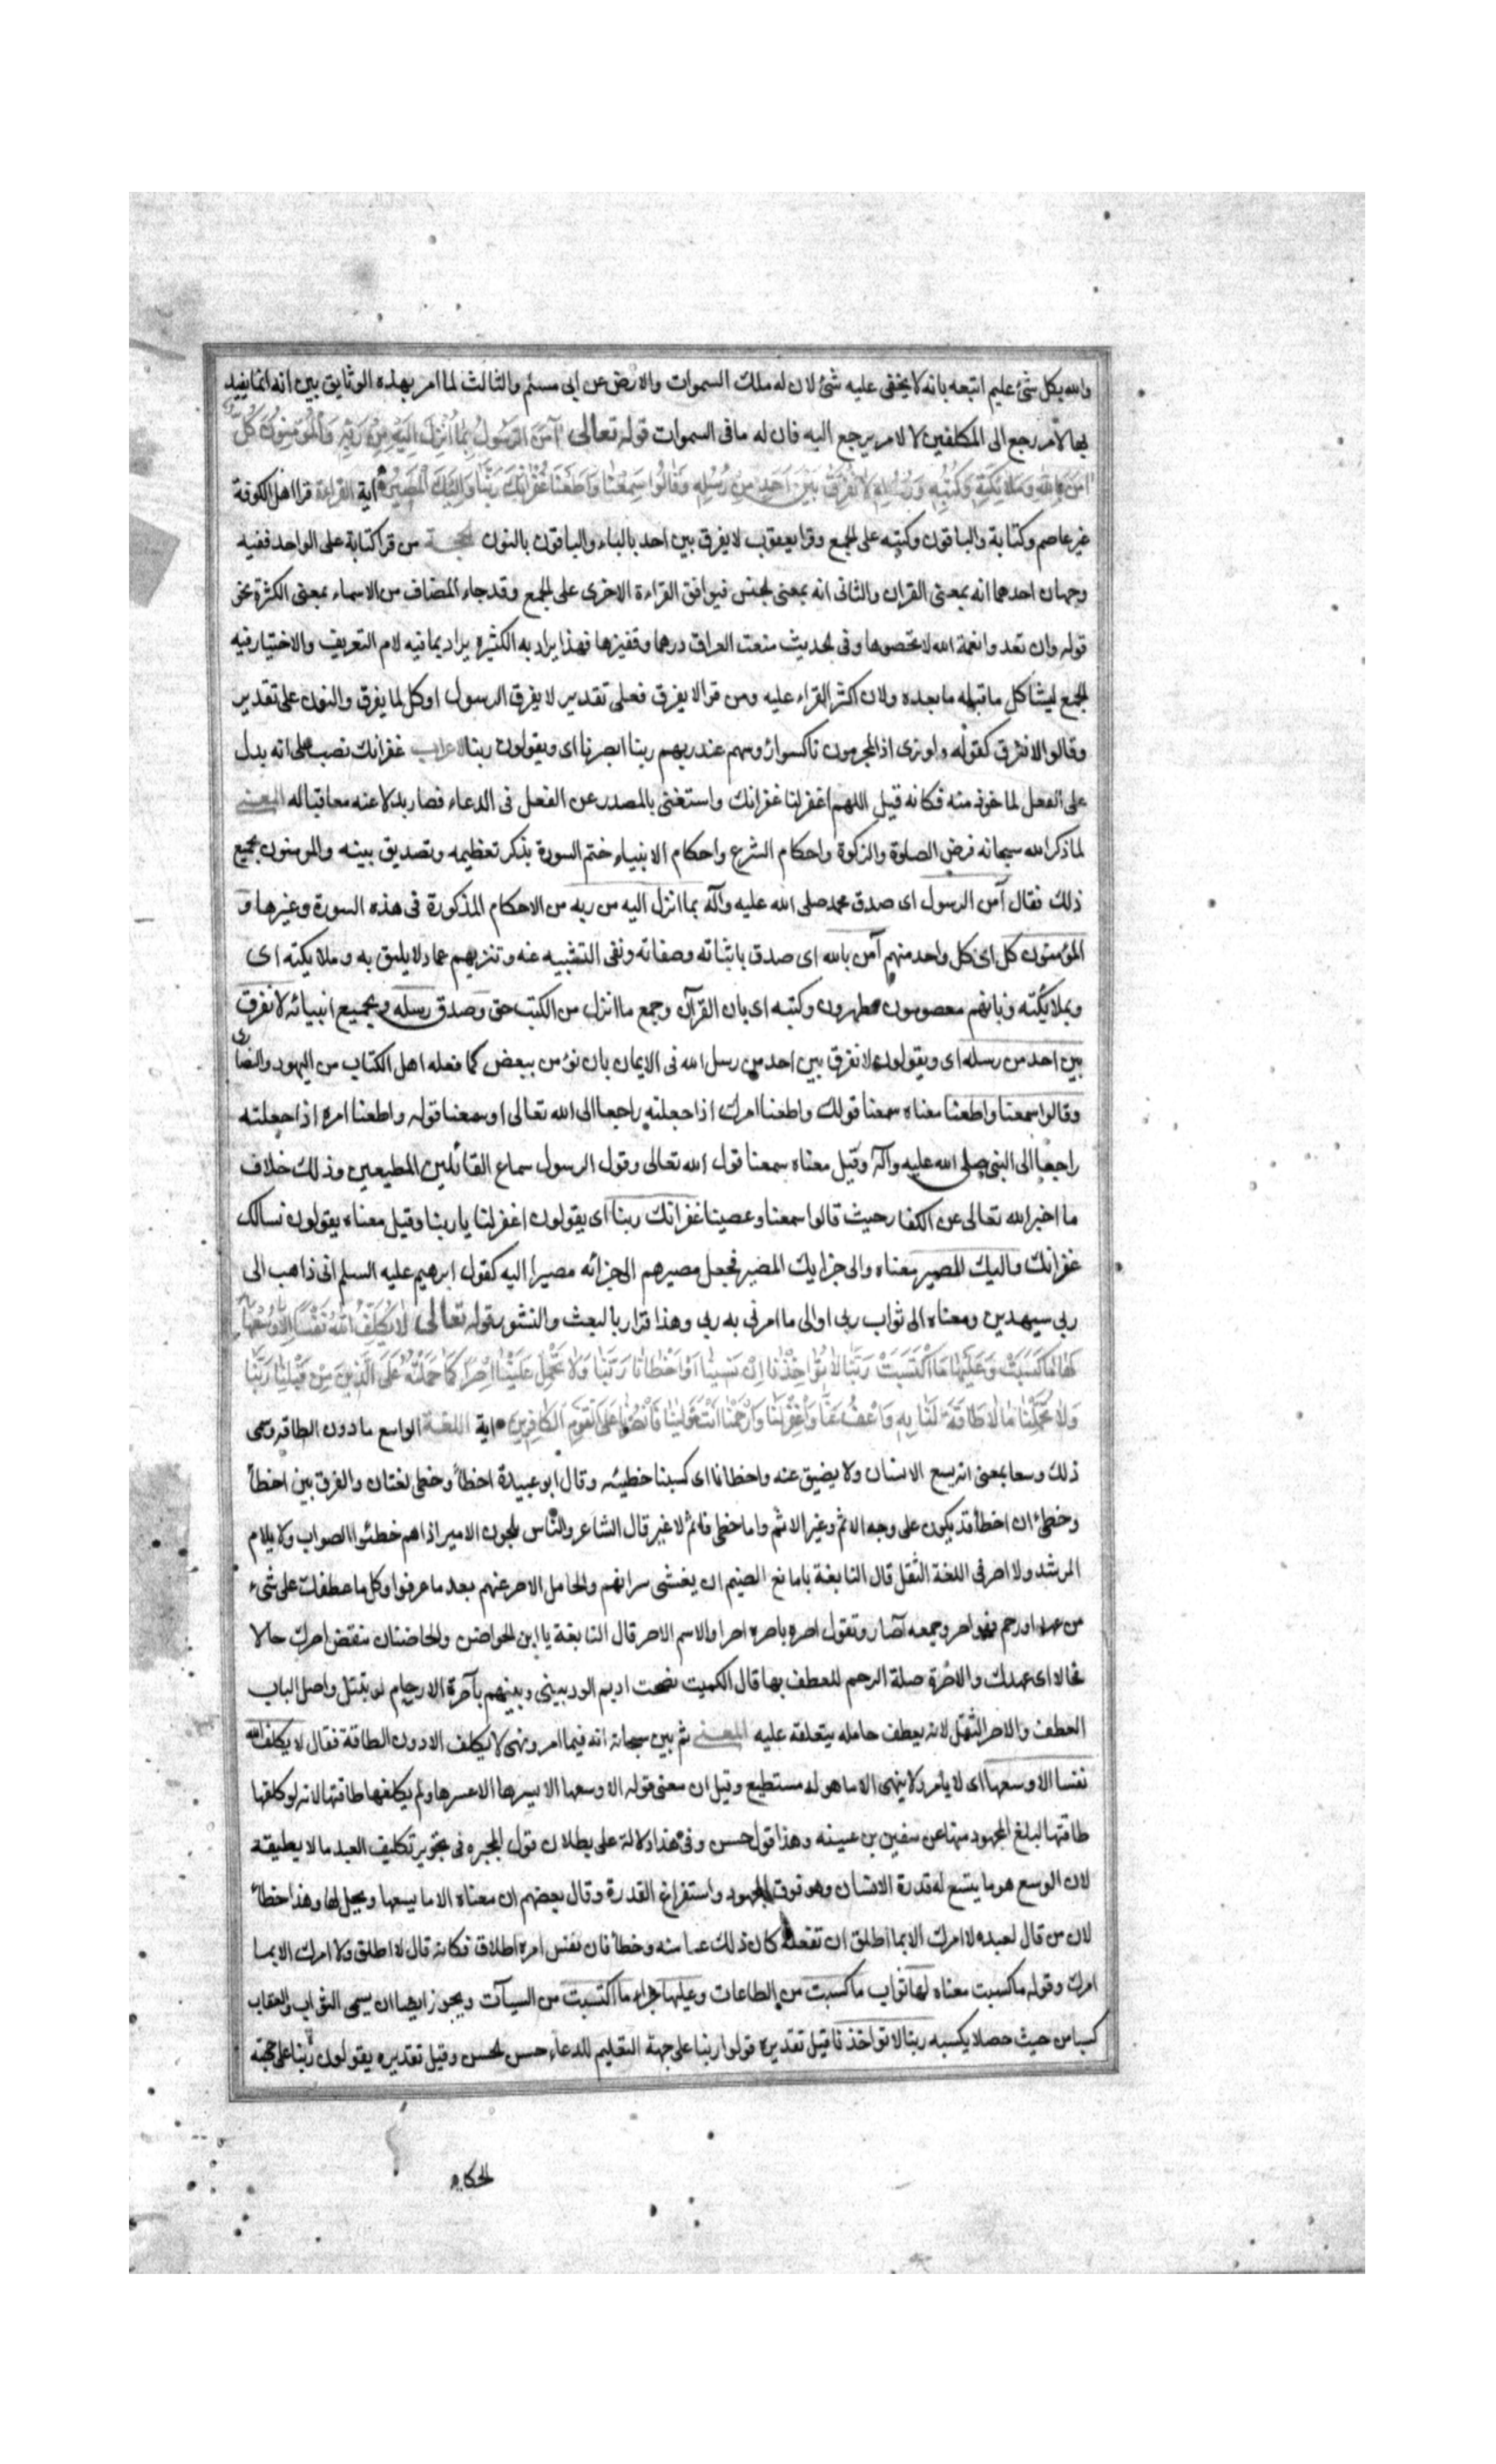 والله بكل شئ عليم اتبعه بانه لا يخفى عليه شئ لان له ملك السموات والارض عن ابي مسلم والثالث لما امر بهذه الوثايق بين انه انما يفيد
بها لامر رجع الى المكلفين لا لامر يرجع اليه فان له ما فى السموات قوله تعالى آمَنَ الرَّسُولُ بِمَا اُنْزِلَ اِلَيْهِ مِنْ رَبِّهِ وَالْمُؤْمِنُونَ كُلٌّ
اٰمَنَ بِاللهِ وَمَلَائِكَتِهِ وَكُتُبِهِ وَرُسُلِهِ لَا نُفَرِّقُ بَيْنَ اَحَدٍ مِنْ رُسُلِهِ وَقَالُوا سَمِعْنَا وَاَطَعْنَا غُفْرَانَكَ رَبَّنَا وَاِلَيْكَ الْمَصِيرُ اية القراءة قرا اهل الكوفة
غير عاصم وكتابه والباقون وكتبه على الجمع وقرا يعقوب لا يفرق بين احد بالياء والباقون بالنون الحجة من قرا كتابه على الواحد ففيه
وجهان احدهما انه بمعنى القران والثانى انه بمعنى الجنس فيوافق القراءة الاخرى على الجمع وقد جاء المضاف من الاسماء بمعنى الكثرة نحو
قوله وان تعدوا نعمة الله لا تحصوها وفى الحديث منعت العراق درهما وقفيزها فهذا يراد به الكثير يراد بما فيه لام التعريف والاختيار فيه
الجمع ليشاكل ما قبله ما بعده ولان اكثر القراء عليه ومن قرا لا يفرق فعلى تقدير لا يفرق الرسول او كل لا يفرق والنون على تقدير
وقالوا لا نفرق كقوله ولو ترى اذ المجرمون ناكسوا رؤسهم عند ربهم ربنا ابصرنا اى ويقولون ربنا الاعراب غفرانك نصب على انه بدل
على الفعل لما خوذ منه فكانه قيل اللهم اغفر لنا غفرانك واستغنى بالمصدر عن الفعل فى الدعاء فصار بدلا عنه معاقبا له المعنى
لما ذكر الله سبحانه فرض الصلوة والزكوة واحكام الشرع واحكام الانبياء ختم السورة بذكر تعظيمه وتصديق نبيه والمومنون بجميع
ذلك فقال آمن الرسول اى صدق محمد صلى الله عليه وآله بما انزل اليه من ربه من الاحكام المذكورة فى هذه السورة وغيرها و
المؤمنون كل اى كل واحد منهم آمن بالله اى صدق باثباته وصفاته ونفى التشبيه عنه وتنزيهه عما لا يليق به وملايكته اى
وبملائكته وبانهم معصومون مطهرون وكتبه اى بان القرآن وجمع ما انزل من الكتب حق وصدق رسله وبجميع انبيائه لا نفرق
بين احد من رسله اى ويقولون لا نفرق بين احد من رسل الله فى الايمان بان نؤمن ببعض كما فعله اهل الكتاب من اليهود والنصارى
وقالوا سمعنا واطعنا معناه سمعنا قولك واطعنا امرك اذا جعلته راجعا الى الله تعالى او سمعنا قوله واطعنا امره اذا جعلته
راجعا الى النبى صلى الله عليه وآله وقيل معناه سمعنا قول الله تعالى وقول الرسول سماع القائلين المطيعين وذلك خلاف
ما اخبر الله تعالى عن الكفار حيث قالوا سمعنا وعصينا غفرانك ربنا اى يقولون اغفر لنا يا ربنا وقيل معناه يقولون نسالك
غفرانك واليك المصير معناه والى جزايك المصير فجعل مصيرهم الى جزائه مصيرا اليه كقول ابرهيم عليه السلم انى ذاهب الى
ربى سيهدين ومعناه الى ثواب ربى او الى ما امرنى به ربى وهذا اقرار بالبعث والنشور قوله تعالى لَا يُكَلِّفُ اللهُ نَفْسًا اِلَّا وُسْعَهَا
لَهَا مَا كَسَبَتْ وَعَلَيْهَا مَا اكْتَسَبَتْ رَبَّنَا لَا تُؤَاخِذْنَا اِنْ نَسِينَا اَوْ اَخْطَأْنَا رَبَّنَا وَلَا تَحْمِلْ عَلَيْنَا اِصْرًا كَمَا حَمَلْتَهُ عَلَى الَّذِينَ مِنْ قَبْلِنَا رَبَّنَا
وَلَا تُحَمِّلْنَا مَا لَا طَاقَةَ لَنَا بِهِ وَاعْفُ عَنَّا وَاغْفِرْ لَنَا وَارْحَمْنَا اَنْتَ مَوْلَينَا فَانْصُرْنَا عَلَى الْقَوْمِ الْكَافِرِينَ اية اللغة الواسع ما دون الطاقه وسمى
ذلك وسعا بمعنى انه يسع الانسان ولا يضيق عنه واخطانا اى كسبنا خطيئه وقال ابو عبيدة اخطأ وخطى لغتان والفرق بين اخطأ
وخطئ ان اخطأ قد يكون على وجه الاثم وغير الاثم واما خطى فاثم لا غير قال الشاعر والناس يلحون الامير اذا هم خطئوا الصواب ولا يلام
المرشد والاصر فى اللغة الثقل قال النابغة يا مانع الضيم ان يغشى سراتهم والحامل الاصر عنهم بعد ما عرفوا وكل ما عطفك على شىء
من عهد او رحم فهو اصر وجمعه آصار وتقول اصره ياصره اصرا والاسم الاصر قال النابغة يا ابن الحواضن والحاضنات اتنقض اصرك حالا
فحالا اى عهدك والاصرة صلة الرحم للعطف بها قال الكميت نضحت اديم الود بينى وبينهم بآصرة الارحام لو يتبلل واصل الباب
العطف والاصر الثقل لانه يعطف حامله بثقله عليه المعنى ثم بين سبحانه انه فيما امر ونهى لا يكلف الا دون الطاقة فقال لا يكلف الله
نفسا الا وسعها اى لا يأمر ولا ينهى الا ما هو له مستطيع وقيل ان معنى قوله الا وسعها الا يسرها لا عسرها ولم يكلفها طاقتها لانه لو كلفها
طاقتها لبلغ المجهود منها عن سفين بن عيينه وهذا قول حسن وفى هذا دلالة على بطلان قول المجبره فى تجويز تكليف العبد ما لا يطيقه
لان الوسع هو ما يتسع له قدرة الانسان وهو فوق المجهود واستفراغ القدرة وقال بعضهم ان معناه الا ما يسعها ويحل لها وهذا خطأ
لان من قال لعبده لا امرك الا بما اطلق ان تفعله كان ذلك عيا منه وخطأ فان نفس امره اطلاق فكانه قال لا اطلق ولا امرك الا بما
امرك وقوله ما كسبت معناه لها ثواب ما كسبت من الطاعات وعليها جزاء ما اكتسبت من السيآت ويجوز ايضا ان يسمى الثواب والعقاب
كسبا من حيث حصلا بكسبه ربنا لا تؤاخذنا قيل تقديره قولوا ربنا على جهة التعليم للدعاء حسن الحسن وقيل تقديره يقولون ربنا على جهة
الحكايه